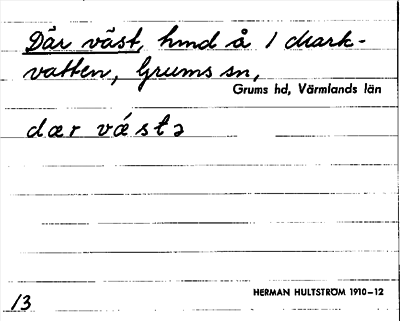 Där väst, hmd å I Mark-
vatten, Grums sn,
Grums hd, Värmlands län
dær vǽstə
HERMAN HULTSTRÖM 1910–12
13